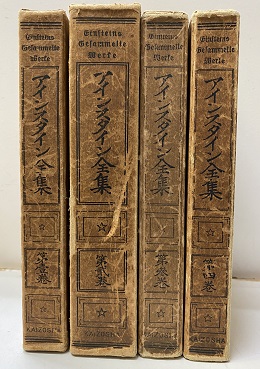 Einsteins
Gesammelte
Werke
アインスタイン全集
第壹卷
KAIZOSHA
Einsteins
Gesammelte
Werke
アインスタイン全集
第貳卷
KAIZOSHA
Einsteins
Gesammelte
Werke
アインスタイン全集
第參卷
KAIZOSHA
Einsteins
Gesammelte
Werke
アインスタイン全集
第四卷
KAIZOSHA